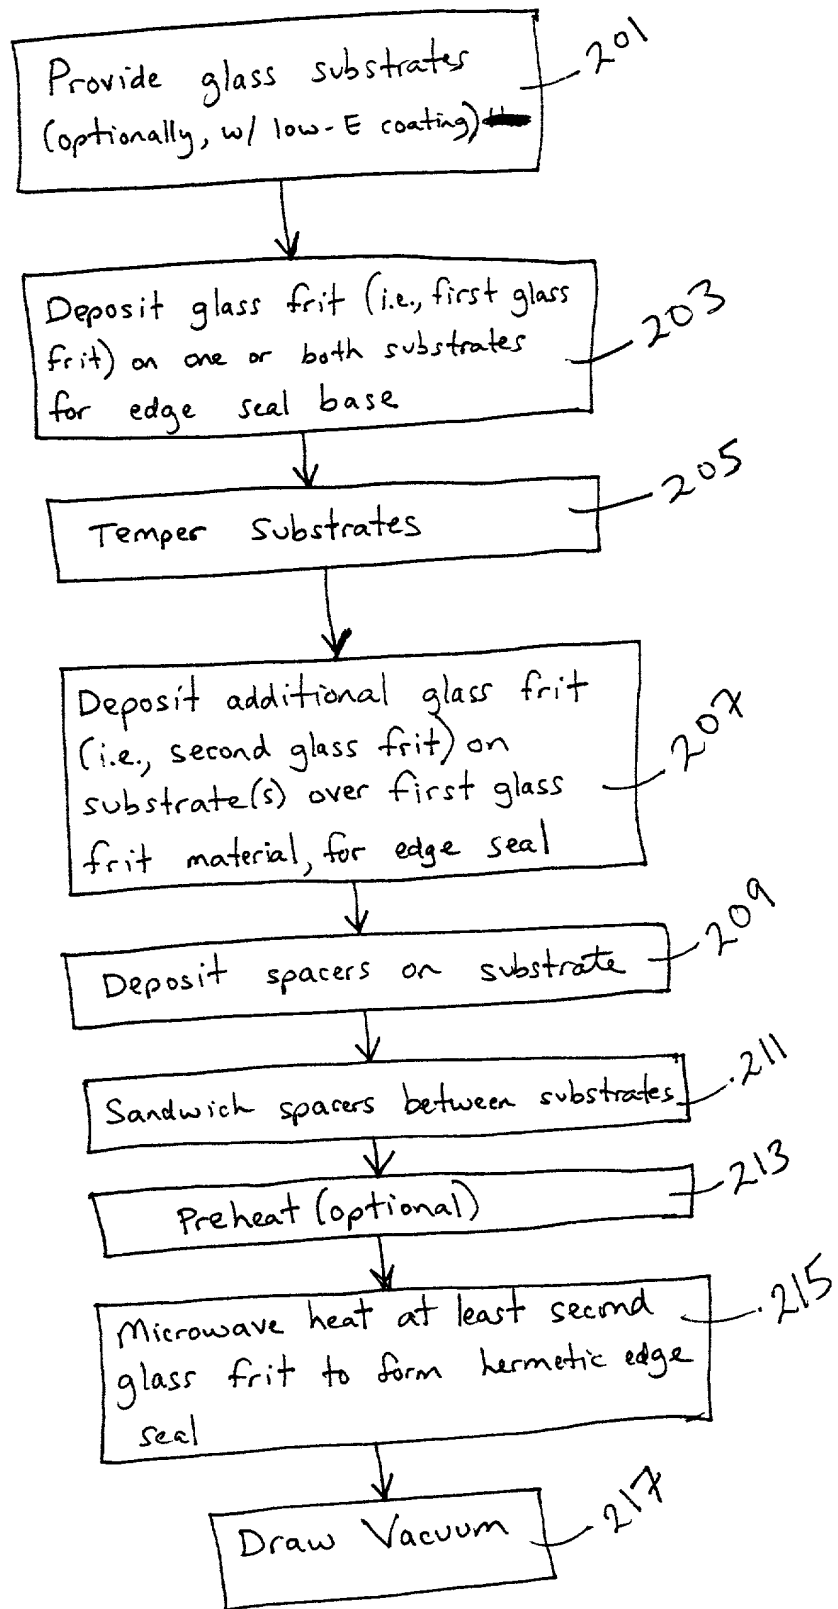 Provide glass substrates
201
(optionally, w/ low-E coating)
Deposit glass frit (i.e., first glass
frit) on one or both substrates
203
for edge seal base
205
Temper Substrates
Deposit additional glass frit
(i.e., second glass frit) on
207
substrate(s) over first glass
frit material, for edge seal
209
Deposit spacers on substrate
211
Sandwich spacers between substrates
213
Preheat (optional)
215
Microwave heat at least second
glass frit to form hermetic edge
seal
217
Draw Vacuum